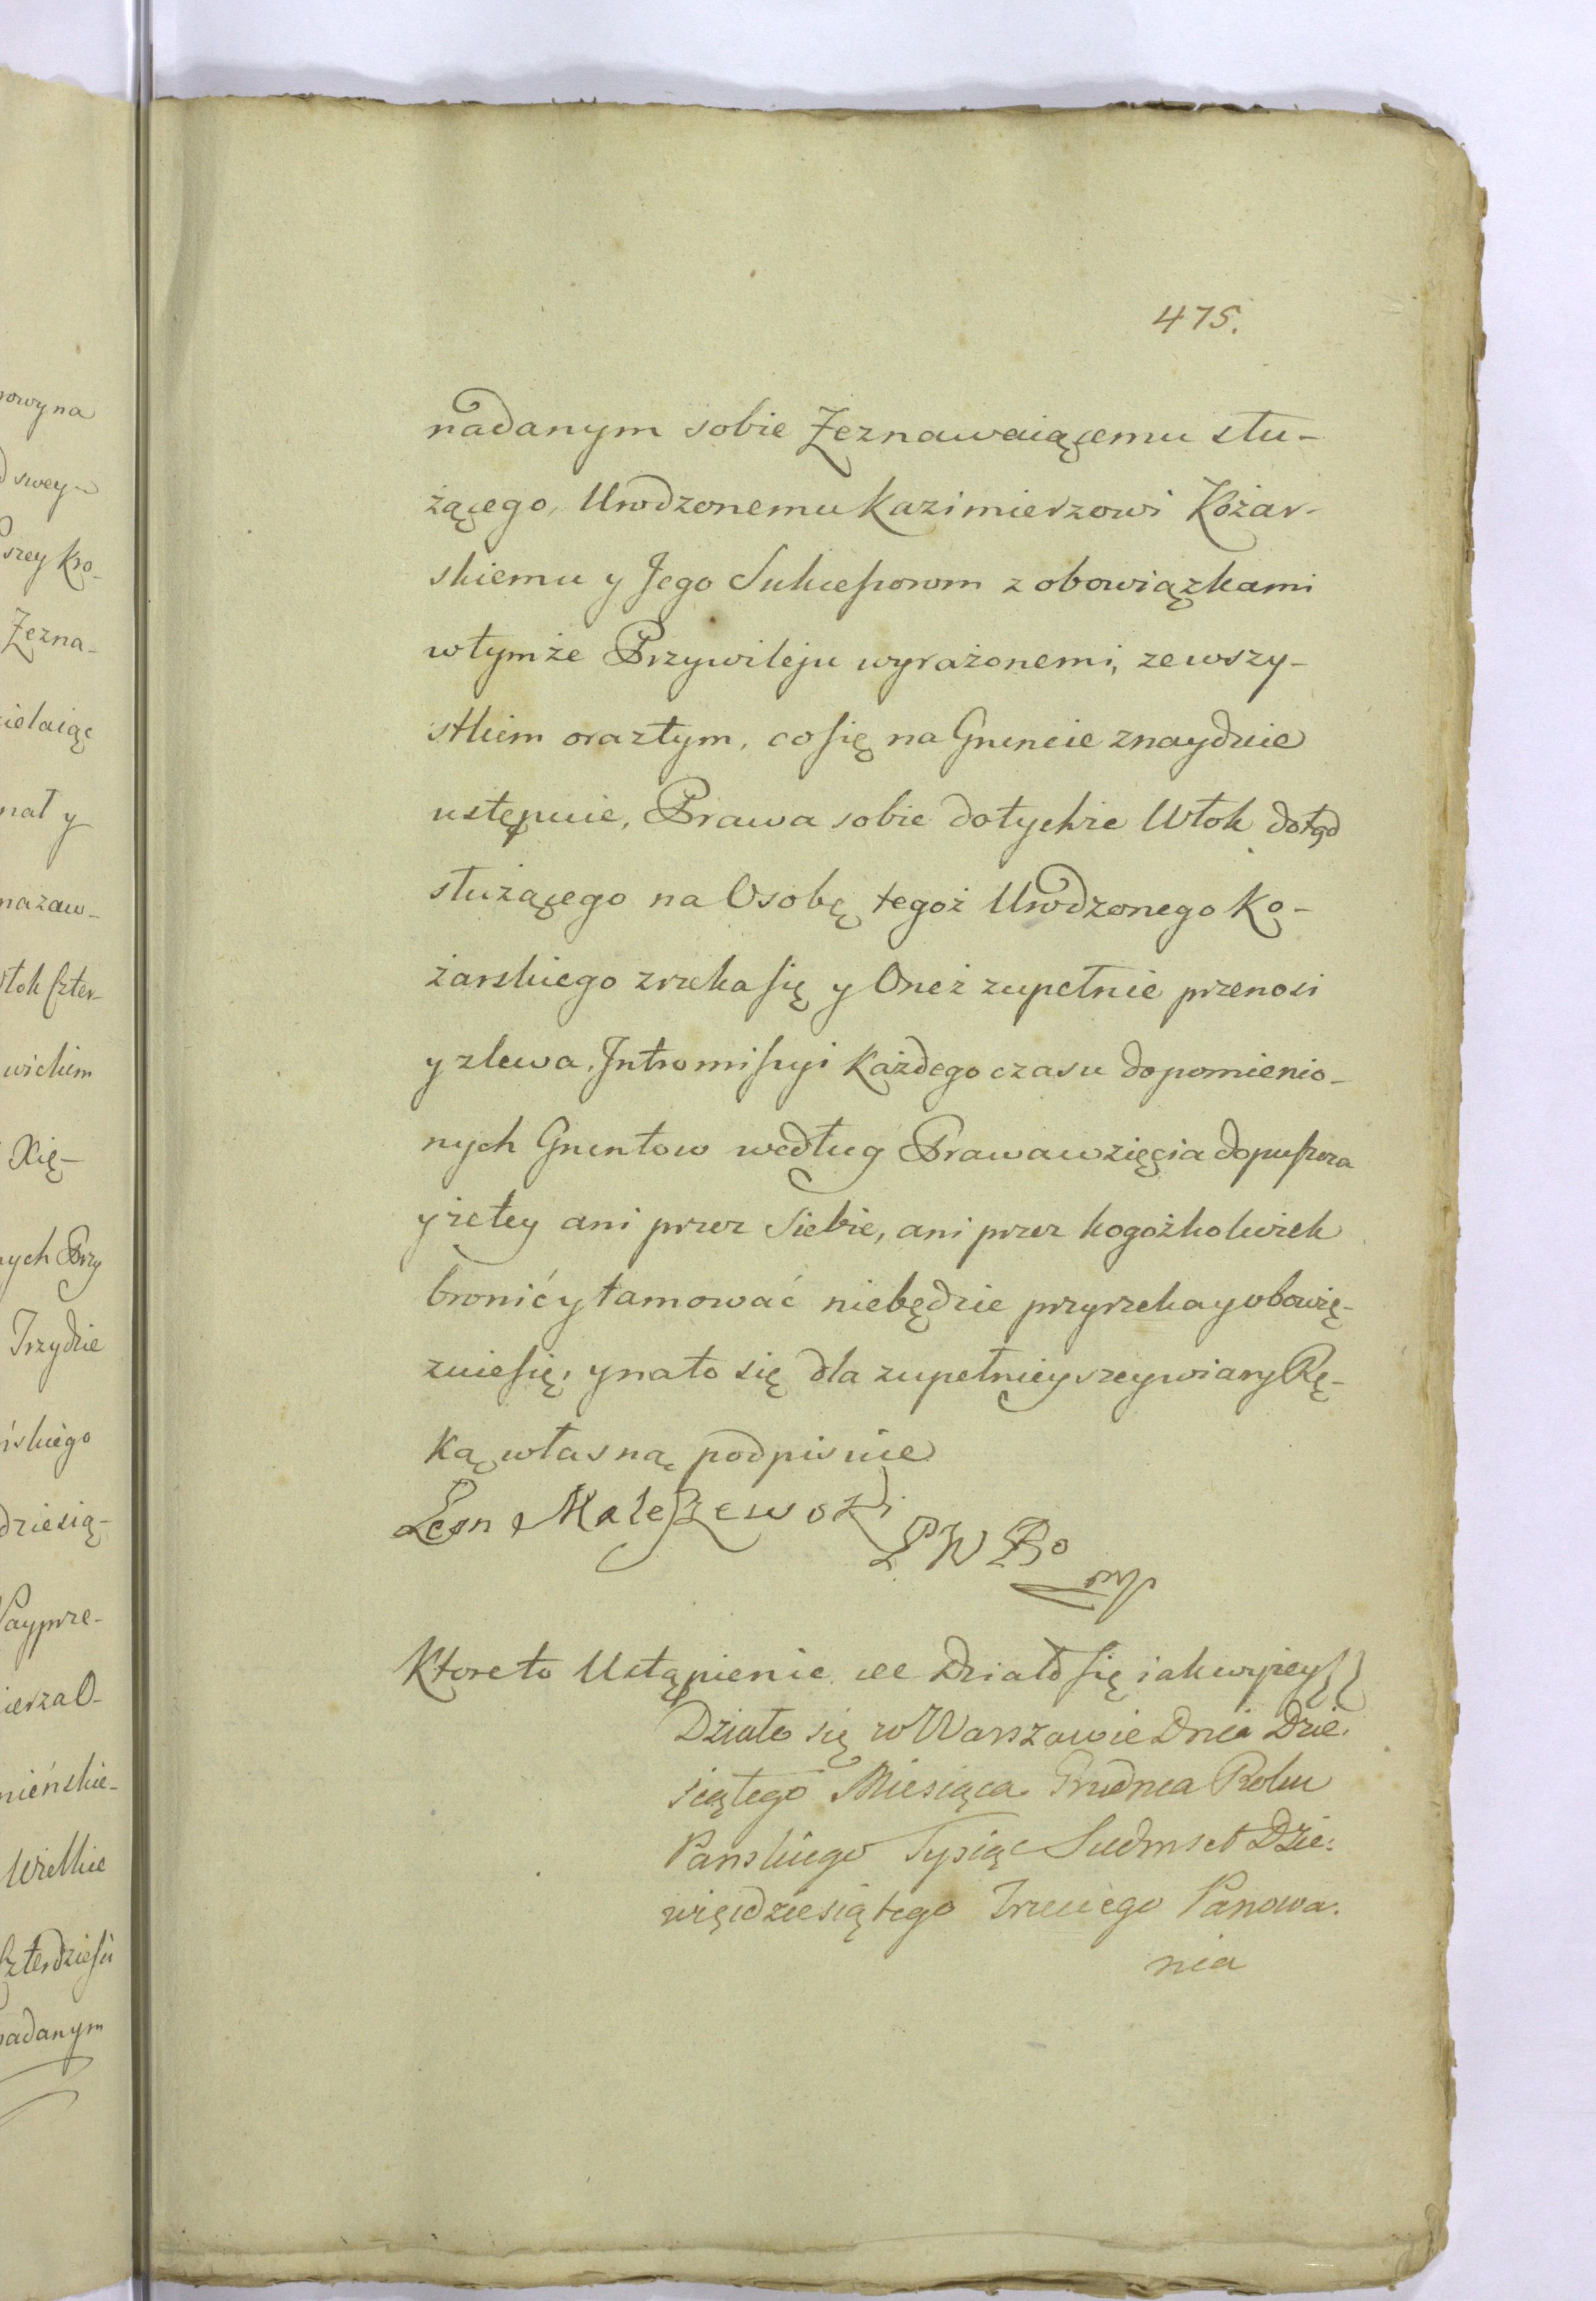 475.
nadanym sobie Zeznawaiącemu słu-
żącego, Urodzonemu Kazimierzowi Kożar-
skiemu y Jego Sukcessorom z obowiązkami
w tymże Przywileju wyrażonemi, ze wszy-
stkiem oraz tym, co się na Gruncie znayduie
ustępuie, Prawa sobie do tychże Włok dotąd
służącego na Osobę tegoż Urodzonego Ko-
żarskiego zrzeka się y Oneż zupełnie przenosi
y zlewa, Intromissyi każdego czasu do pomienio-
nych Gruntow według Prawa wzięcia dopuszcza
y że tey ani przez Siebie, ani przez kogożkolwiek
bronić y tamować niebędzie przyrzeka y obowię-
zuie się, y na to się dla zupełnieyszey wiary Rę-
ką własną podpisuie
Leon Maleszewski
P W Bo
mp
Ktore to Ustąpienie Działo się iak wyżey
Działo się w Warszawie Dnia Dzie.
siątego Miesiąca Grudnia Roku
Panskiego Tysiąc Siedmset Dzie:
więćdziesiątego Trzeciego Panowa.
nia
owy na
swey
szey Kro-
Zezna-
ielaiąc
nał y
nazaw-
Włok Czter-
wiekiem
Xię-
nych Przy
Trzydzie
ńskiego
dziesią-
Nayprze-
ierza O-
mieńskie-
Wielkie
Czterdziesci
nadanym